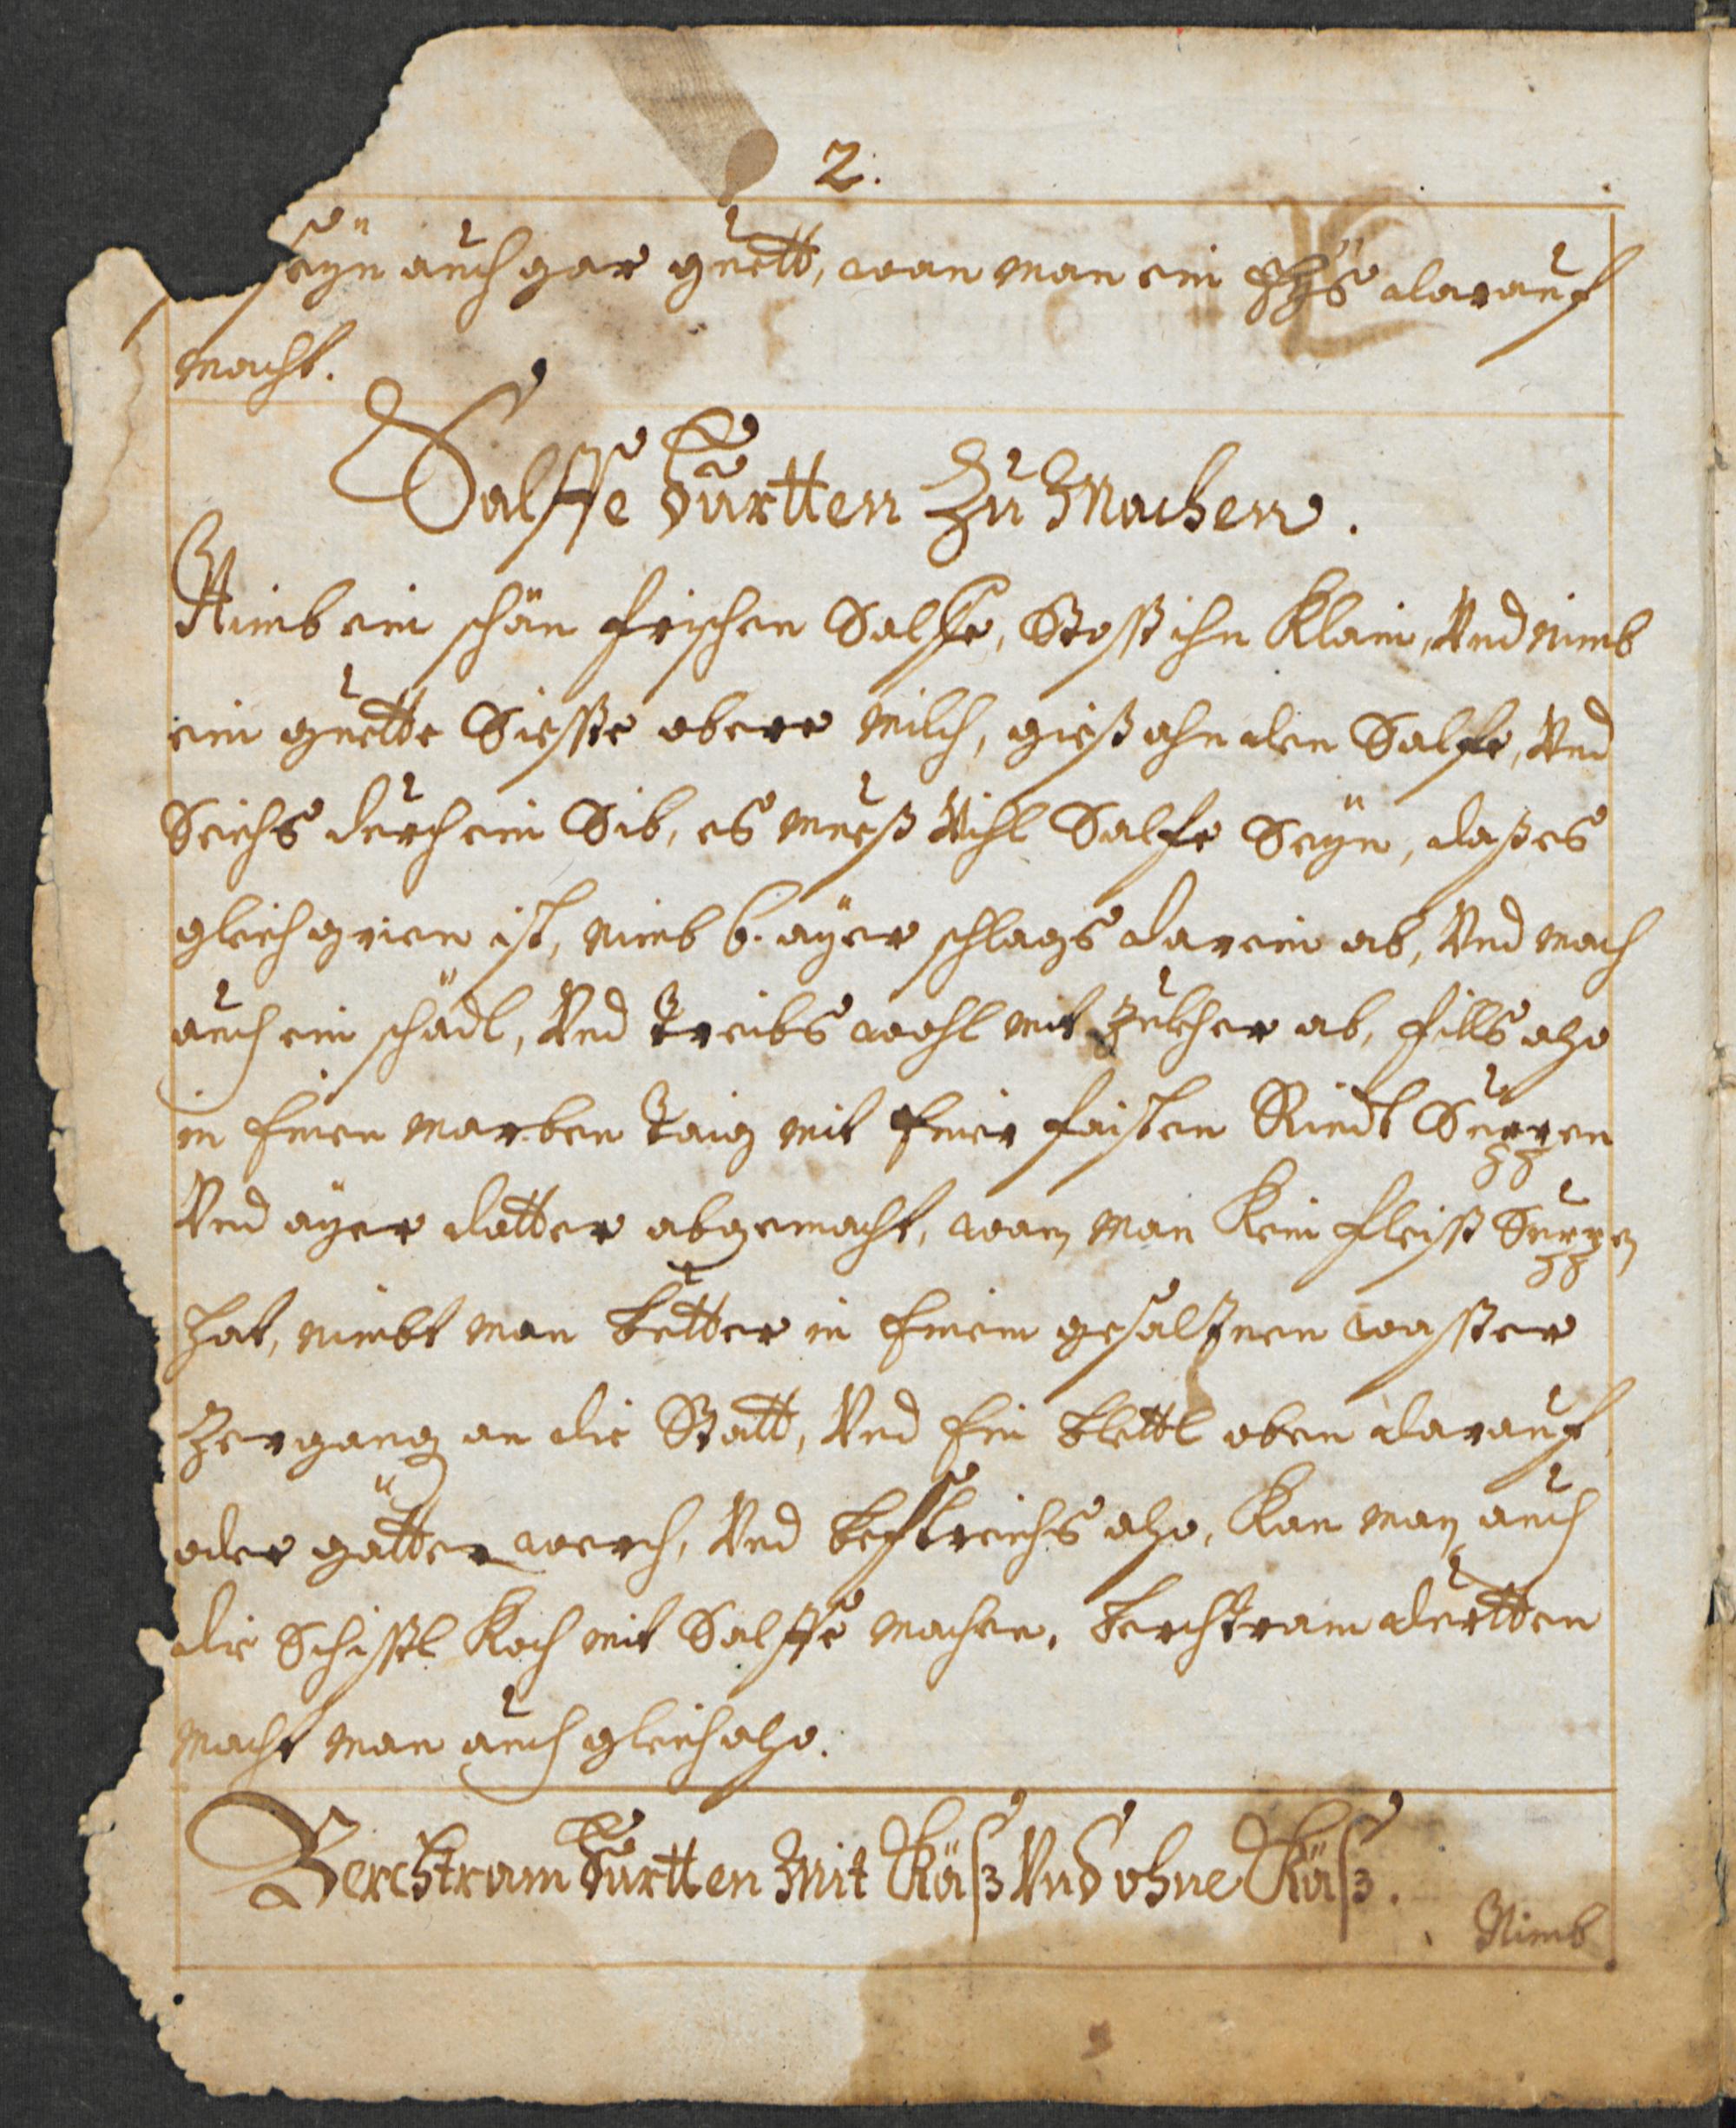 2.
seÿn auch gar guett, wan man ein Eÿs darauf
macht.
Salffe Turtten Zu Machen.
Nimb ein schän frischen Salffe, Stoss ihn Klain, Vnd nimb
ein guette Siesse obere Milch, gieß ahn den Salfe, Vnd
Seichs durch ein Sib, es mueß Vihl Salfe Seÿn, daß es
gleich grien ist, nimb 6. aÿer schlags darein ab, Vnd mach
auch ein schädl, Vnd treibs wohl mit Zukher ab, fills also
in Einen marben Taig mit Einer faisten Rindt Suppen
Vnd aÿer dotter abgemacht, wan man Kein fleisch Suppen
hat, nimbt man butter in Einem gesaltznen wasser
Zergang an die Statt, Vnd Ein blettl oben darauf,
oder gätter werch, Vnd bestreichs also, Kan man auch
die Schissl Koch mit Salffe machen, berchtram durtten
macht man auch gleich also.
Berchtram Turtten Mit Käß Vnd ohne Käß.
Nimb